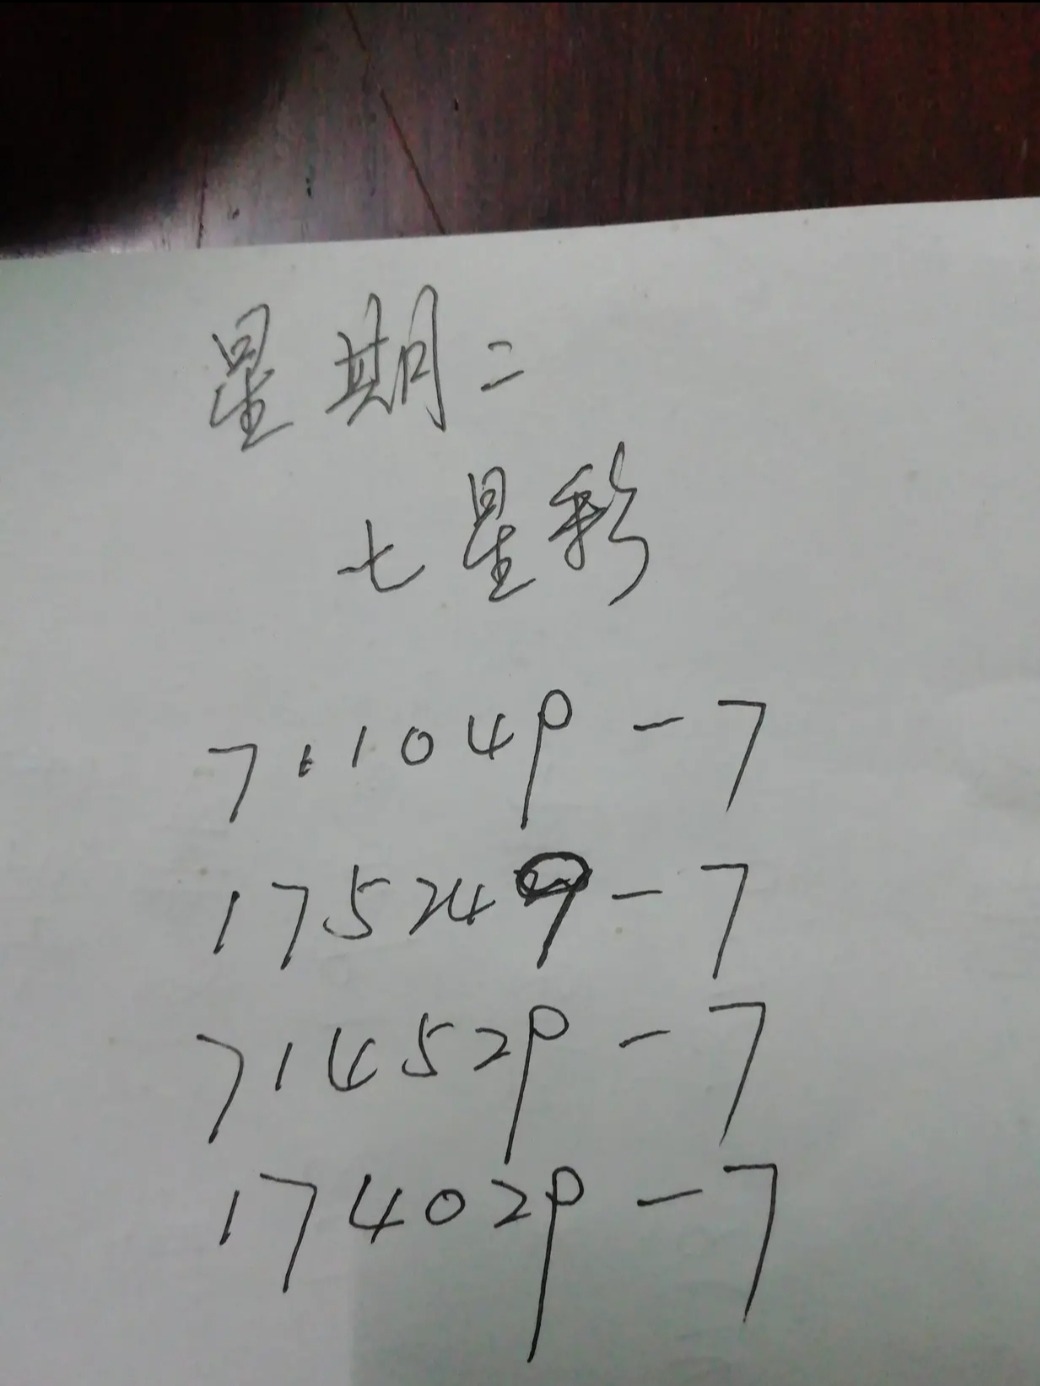 星期二
七星彩
711049-7
175249-7
714529-7
174029-7